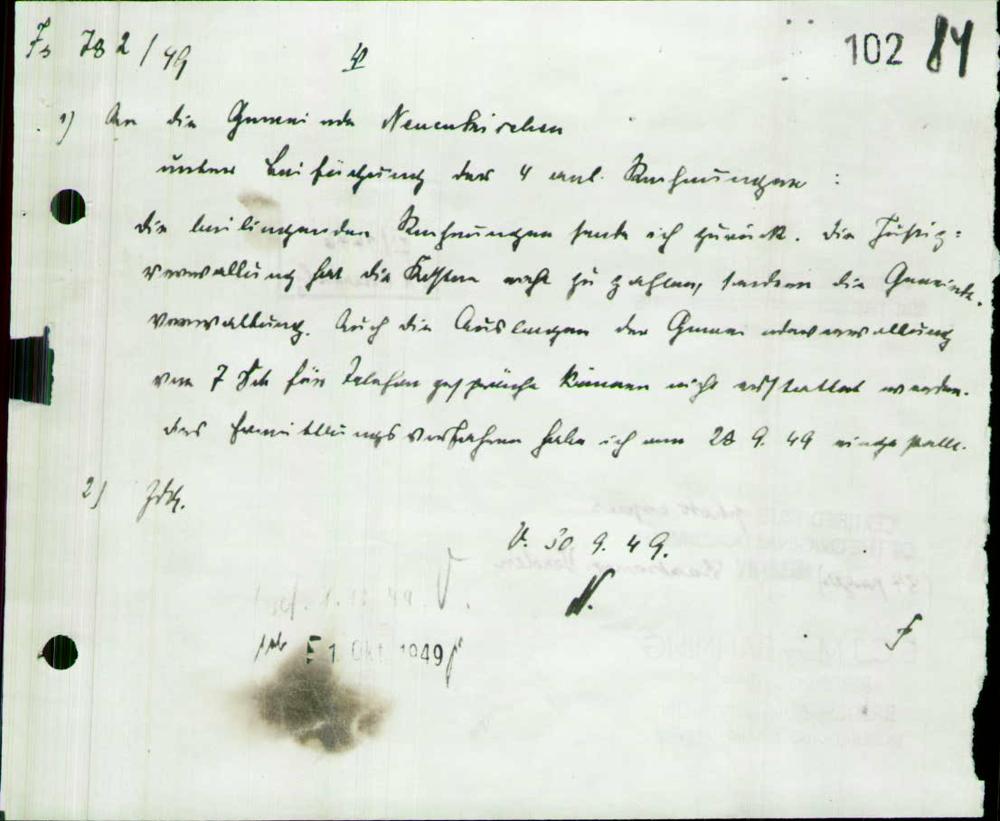 Js 782/49
102 84
1) An die Gemeinde Neuenkirchen
unter Beifügung der 4 anl. Rechnungen :
die beiliegenden Rechnungen sende ich zurück. Die Justiz=
verwaltung hat die Kosten nicht zu zahlen, sondern die Gemeinde-
verwaltung. Auch die Auslagen der Gemeindeverwaltung
von 7 DM für Telefongespräche können nicht erstattet werden.
Das Ermittlungsverfahren habe ich am 28 9. 49 eingestellt.
2)
V. 30. 9. 49.
1. Okt. 1949